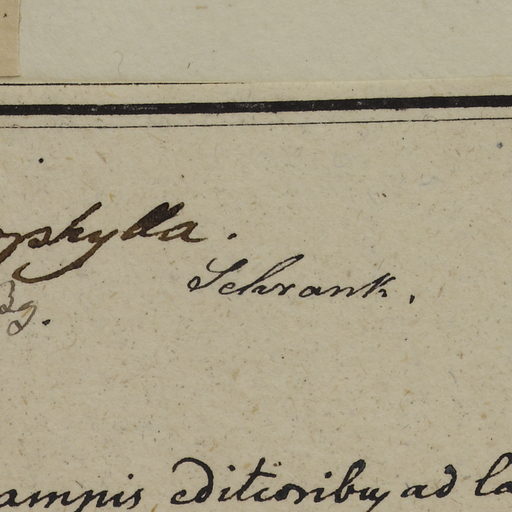 ophylla.
Schrank.
Bg.
ampis editioribus ad la